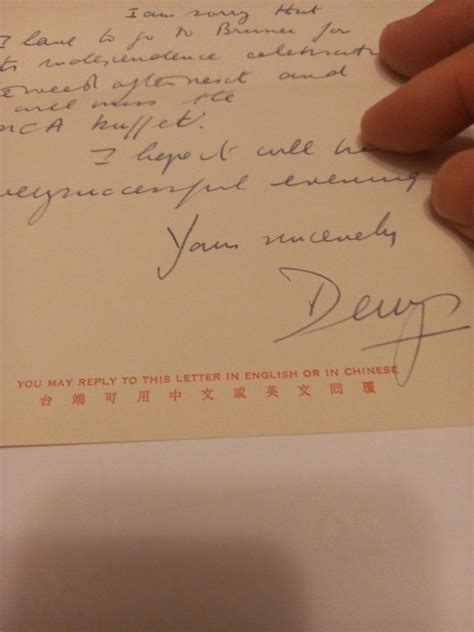 I am sorry that
I have to go to Brunei for
its independence celebrations
week after next and
will miss the
buffet.
I hope it will be
very successful evening
Yours sincerely
YOU MAY REPLY TO THIS LETTER IN ENGLISH OR IN CHINESE
台端可用中文或英文回覆